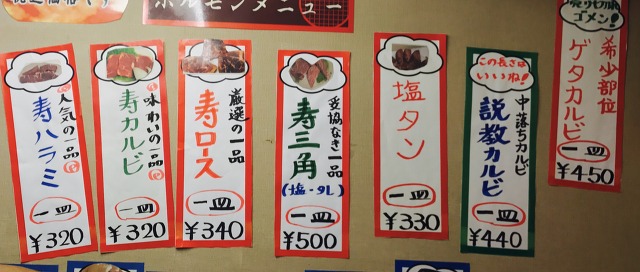 ホルモンメニュー
人気の一品
寿ハラミ
一皿
¥320
味わいの一品
寿カルビ
一皿
¥320
厳選の一品
寿ロース
一皿
¥340
妥協なき一品
寿三角
(塩・タレ)
一皿
¥500
塩タン
一皿
¥330
この長さは
いいね!
中落ちカルビ
説教カルビ
一皿
¥440
売り切れ
ゴメン!
希少部位
ゲタカルビ
一皿
¥450